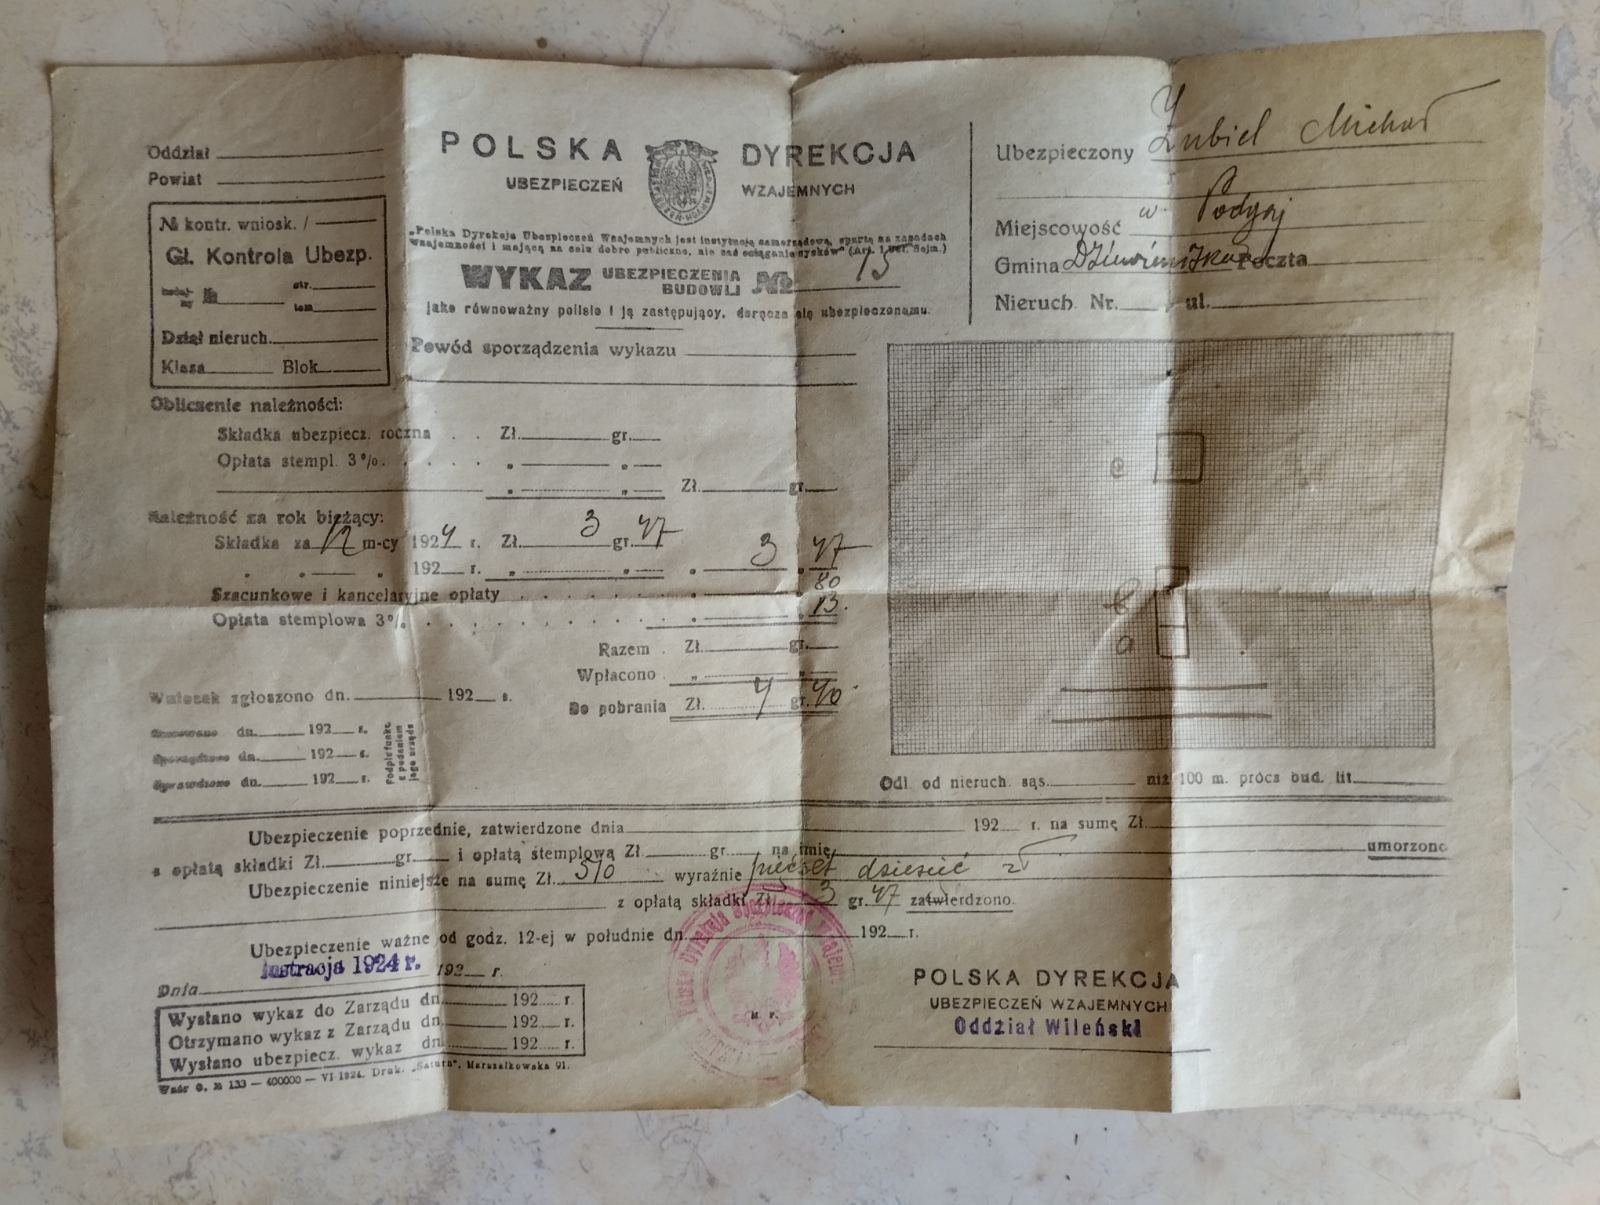 Oddział
Powiat
№ kontr. wniosk. /
Gł. Kontrola Ubezp.
№ str.
tom
Dział nieruch.
Klasa Blok
POLSKA DYREKCJA
UBEZPIECZEŃ WZAJEMNYCH
„Polska Dyrekcja Ubezpieczeń Wzajemnych jest instytucją samorządową, opartą na zasadach
wzajemności i mającą na celu dobro publiczne, nie zaś osiąganie zysków" (Art. 1 Ust. Sejm.)
WYKAZ UBEZPIECZENIA BUDOWLI № 13
jako równoważny polisie i ją zastępujący, doręcza się ubezpieczonemu.
Powód sporządzenia wykazu
Ubezpieczony Zubiel Michał
Miejscowość w. Podgaj
Gmina Poczta
Nieruch. Nr. ul.
Obliczenie należności:
Składka ubezpiecz. roczna . . Zł. gr.
Opłata stempl. 3% . . . . . „ „
„ „ Zł. gr.
Należność za rok bieżący:
Składka za 12 m-cy 1924 r. Zł. 3 gr. 47 3 47
„ „ „ 192 r. „ „ „ „
Szacunkowe i kancelaryjne opłaty 80
Opłata stemplowa 3% 13.
Razem . Zł. gr.
Wpłacono . „ „
Do pobrania Zł. 4 gr. 40
Wniosek zgłoszono dn. 192 r.
Szacowano dn. 192 r.
Sporządzono dn. 192 r.
Sprawdzono dn. 192 r.
Podpis funkc.
z podaniem
jego urzędu
e
b
a
Odl. od nieruch. sąs. niż 100 m. prócz bud. lit.
Ubezpieczenie poprzednie, zatwierdzone dnia 192 r. na sumę Zł.
z opłatą składki Zł. gr. i opłatą stemplową Zł. gr. na imię umorzono
Ubezpieczenie niniejsze na sumę Zł. 510 wyraźnie pięćset dziesięć zł
z opłatą składki Zł. 3 gr. 47 zatwierdzono.
Ubezpieczenie ważne od godz. 12-ej w południe dn. 192 r.
lustracja 1924 r.
Dnia 192 r.
Wysłano wykaz do Zarządu dn. 192 r.
Otrzymano wykaz z Zarządu dn. 192 r.
Wysłano ubezpiecz. wykaz dn. 192 r.
M. P.
POLSKA DYREKCJA
UBEZPIECZEŃ WZAJEMNYCH
Oddział Wileński
Wzór O. № 133 — 400000 — VI 1924. Druk. „Saturn", Marszałkowska 91.